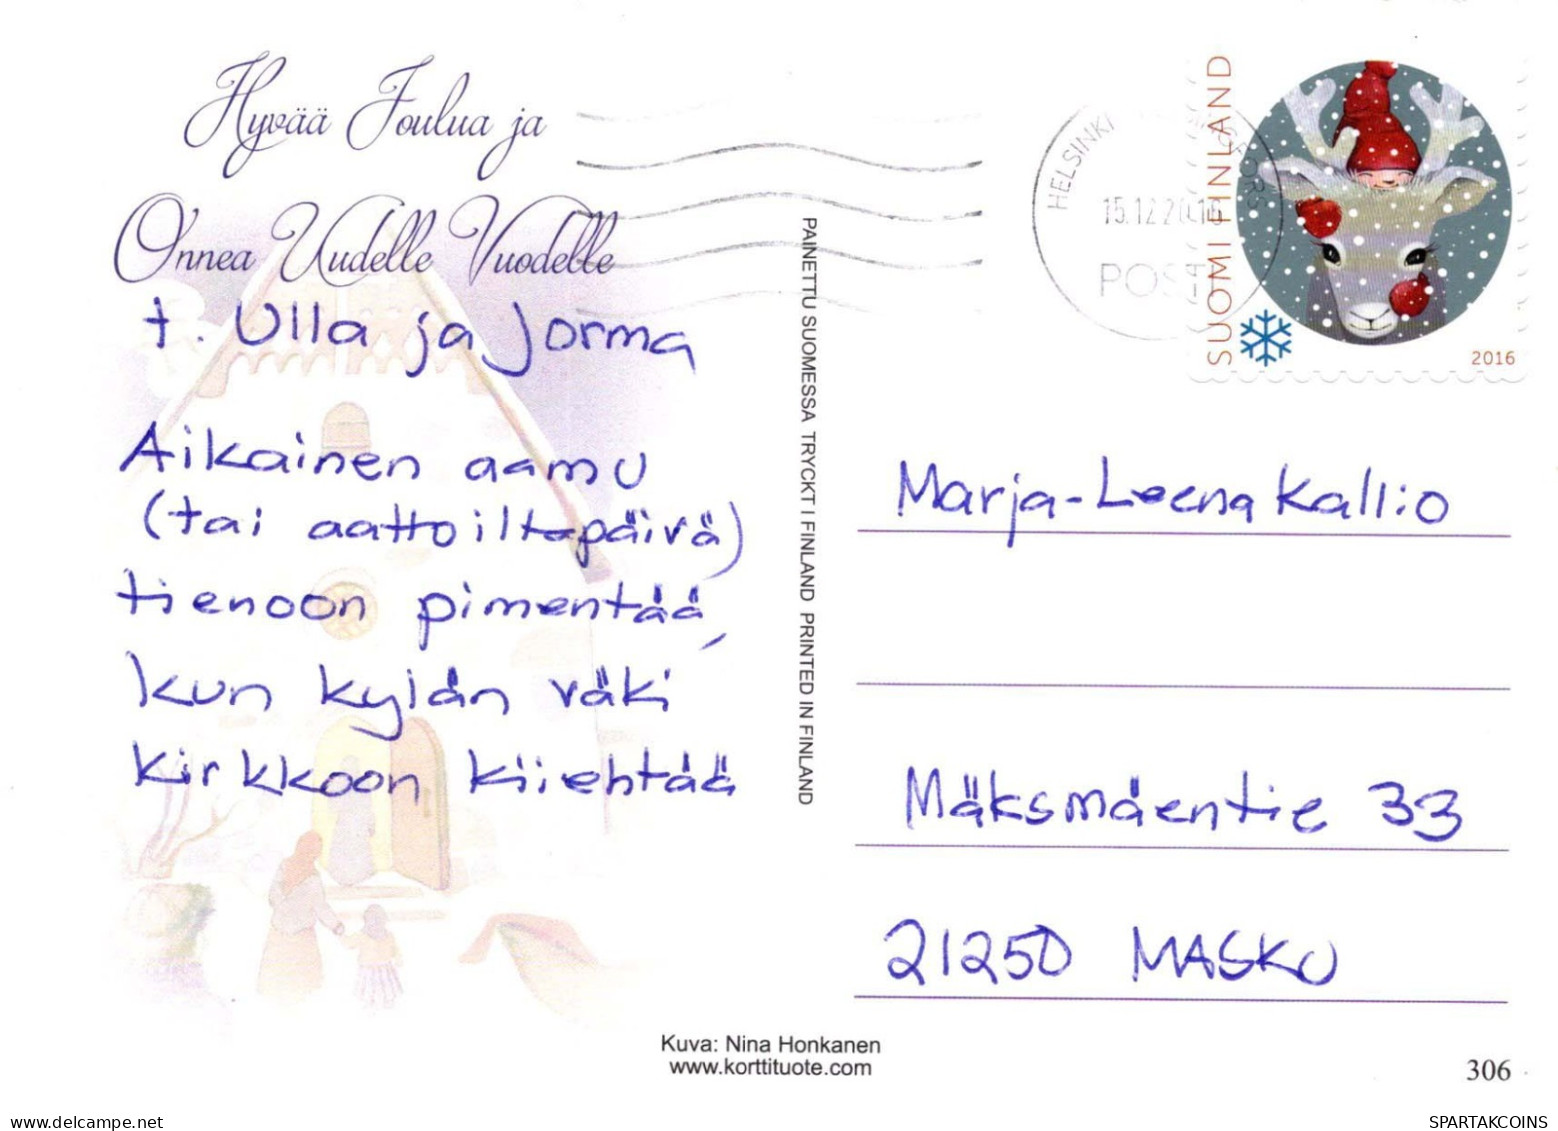 Hyvää Joulua ja
Onnea Uudelle Vuodelle
t. Ulla ja Jorma
Aikainen aamu
(tai aattoiltapäivä)
tienoon pimentää,
kun kylän väki
kirkkoon kiiehtää
PAINETTU SUOMESSA TRYCKT I FINLAND PRINTED IN FINLAND
HELSINKI
15.12.2016
POSTI
SUOMI FINLAND
2016
Marja-Leena Kallio
Mäksmäentie 33
21250 MASKU
Kuva: Nina Honkanen
www.korttituote.com
306
SPARTAKCOINS
https://www.delcampe.net